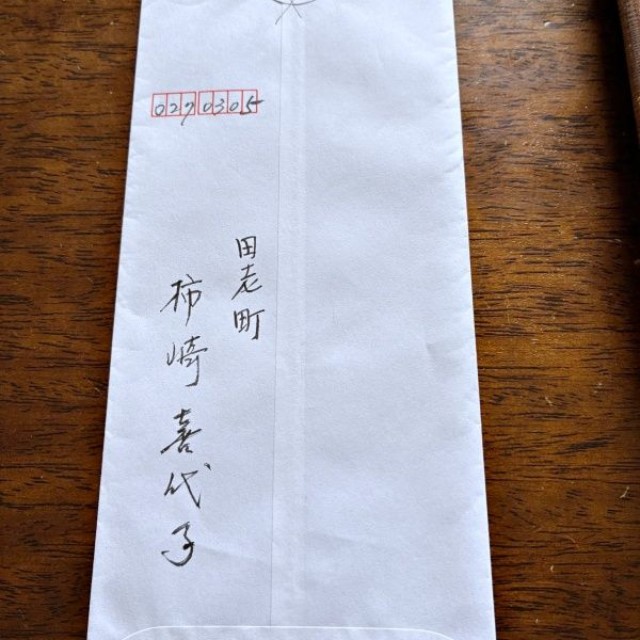 0270305
田老町
柿崎喜代子